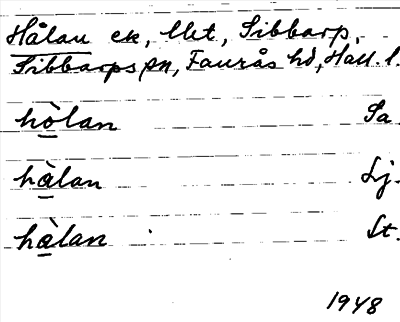 Hålan ek, Uet, Sibbarp,
Sibbarps sn, Faurås hd, Hall. l.
hòlan Sa.
hàlan Lj.
hàlan St.
1948